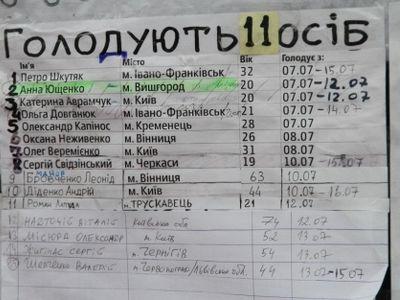 ГОЛОДУЮТЬ 11 ОСІБ
Ім'я Місто Вік Голодує з:
1 Петро Шкутяк м. Івано-Франківськ 32 07.07 - 15.07
2 Анна Ющенко м. Вишгород 20 07.07 - 12.07
3 Катерина Аврамчук м. Київ 20 07.07 - 12.07
4 Ольга Довганюк м. Івано-Франківськ 21 07.07 - 14.07
5 Олександр Капінос м. Кременець 28 07.07
6 Оксана Неживенко м. Вінниця 26 08.07
7 Олег Веремієнко м. Київ 31 08.07
8 Сергій Свідзінський м. Черкаси 19 10.07 - 15.07
9 Бровченко Леонід м. Вінниця 63 10.07
10 Діденко Андрій м. Київ 44 10.07 - 16.07
11 Роман м. ТРУСКАВЕЦЬ 21 12.07
ВІТАЛІЙ Київська обл 74 12.07
МІСЮРА ОЛЕКСАНДР м. Київ 52 13.07
СЕРГІЙ м. Чернігів 54 13.07
ВАЛЕРІЙ м. Червоноград/Львівська обл. 44 13.07-15.07